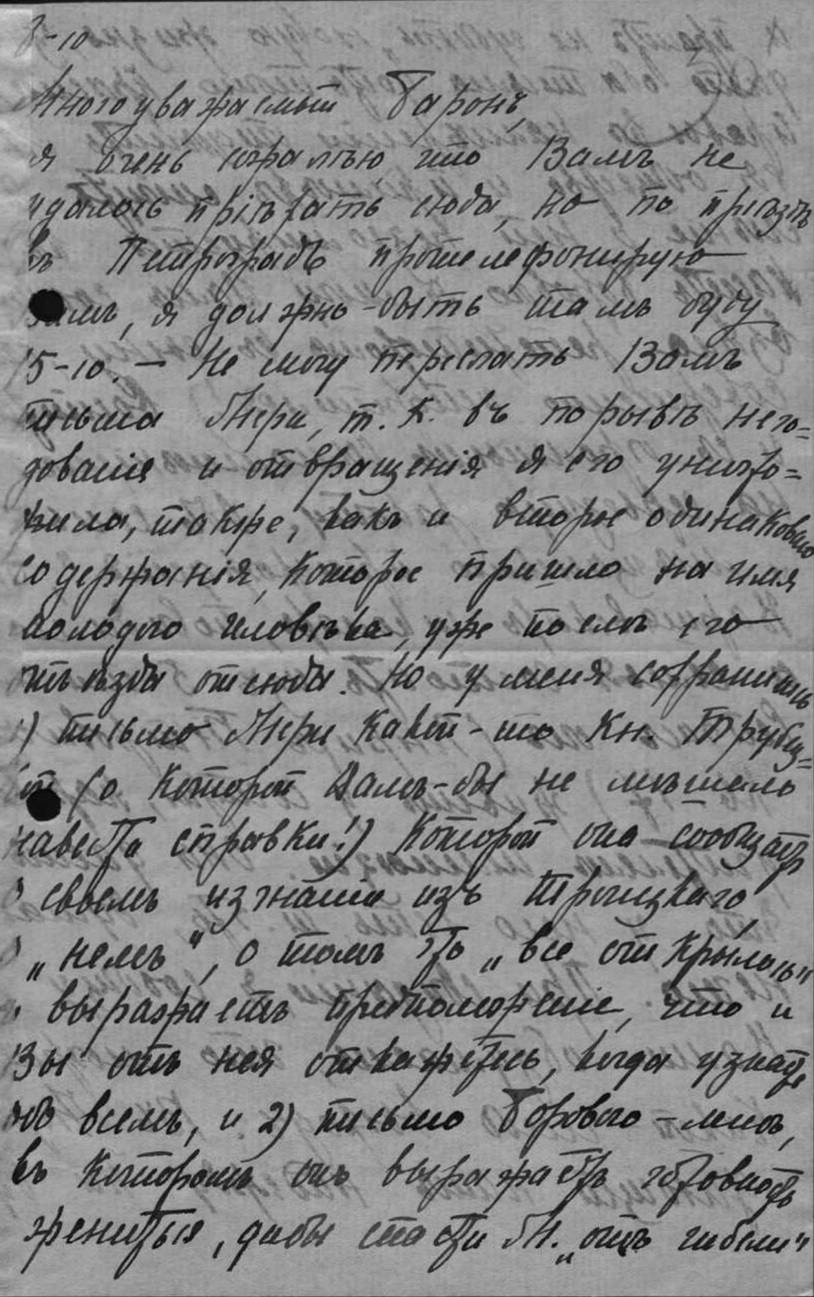 8-10
Многоуважаемый Баронъ,
я очень сожалѣю что Вамъ не
удалось пріѣхать сюда, но по пріѣздѣ
въ Петроградъ протелефонирую
Вамъ, я должно-быть тамъ буду
15-10. — Не могу переслать Вамъ
письма Мери, т. к. въ порывѣ него=
дованія и отвращенія я его уничто=
жила, также, какъ и второе одинаковаго
содержанія, которое пришло на имя
молодого человѣка, уже послѣ его
отъѣзда отсюда. Но у меня сохранились
1) письмо Мери какой-то Кн. Трубец=
ой (о которой Вамъ-бы не мѣшало
навести справки!) которой она сообщаетъ
о своемъ изгнаніи изъ Троицкаго,
о „немъ", о томъ что „все открылось"
и выражаетъ предположеніе, что и
Вы отъ нея откажетесь, когда узнаете
обо всемъ, и 2) письмо Борового-мнѣ,
въ которомъ онъ выражаетъ готовность
жениться, дабы спасти М. „отъ гибели"